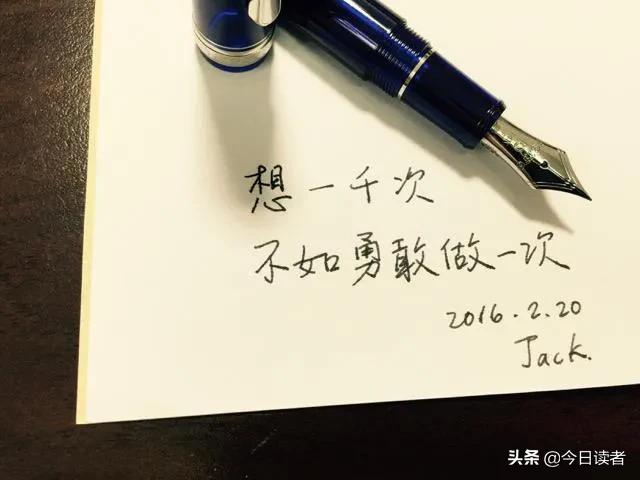 想一千次
不如勇敢做一次
2016.2.20
Jack.
头条 @今日读者